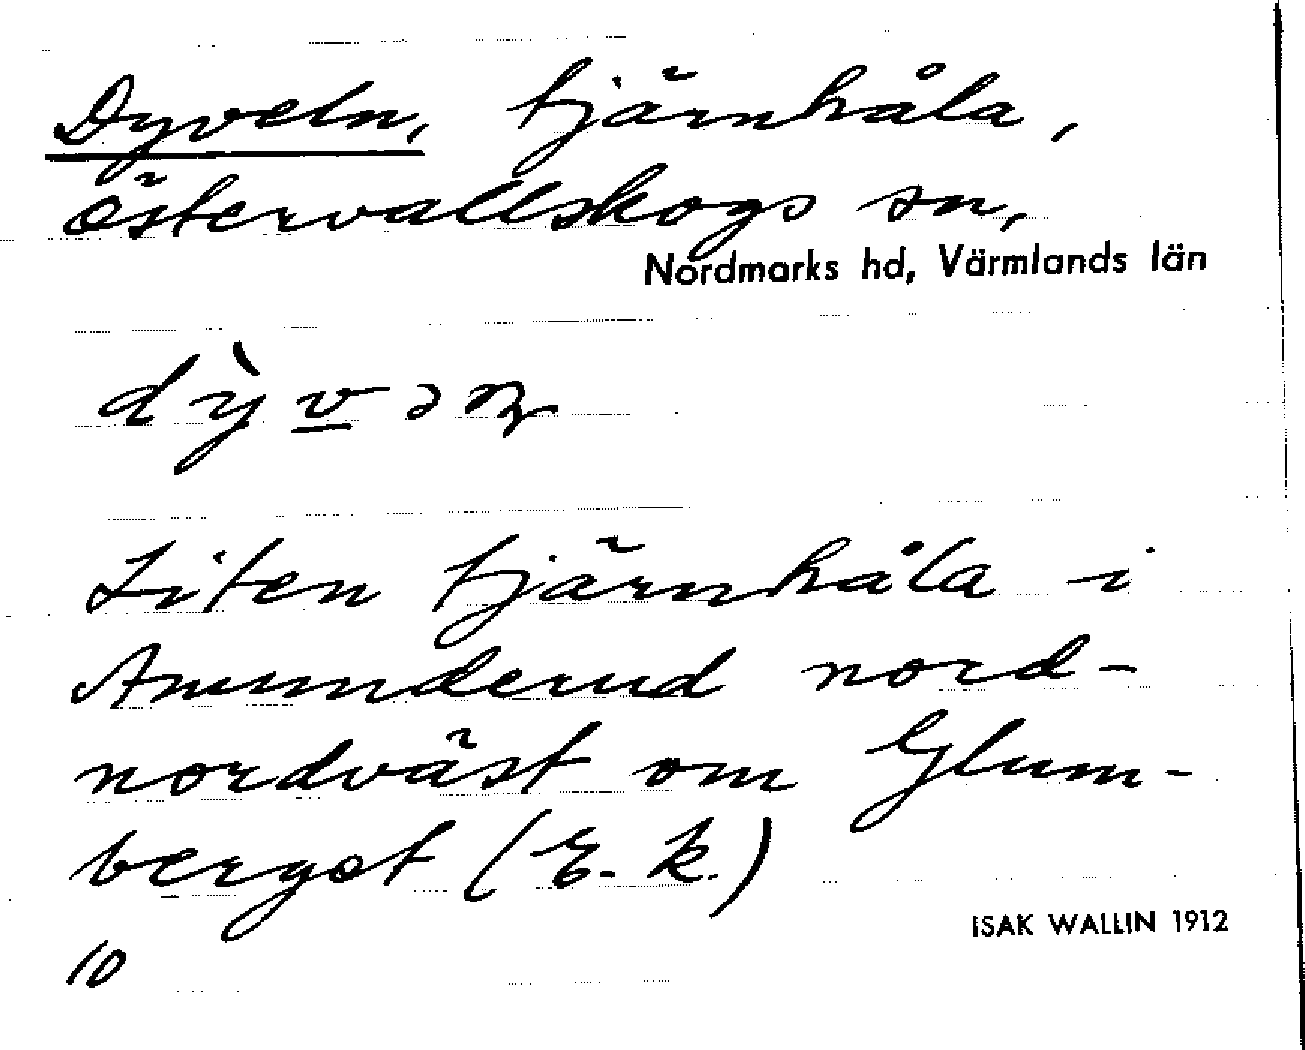 Dyveln, tjärnhåla,
Östervallskogs sn,
Nordmarks hd, Värmlands län
Liten tjärnhåla i
Amunderud nord-
nordväst om Glum-
berget (E. k.)
10
ISAK WALLIN 1912